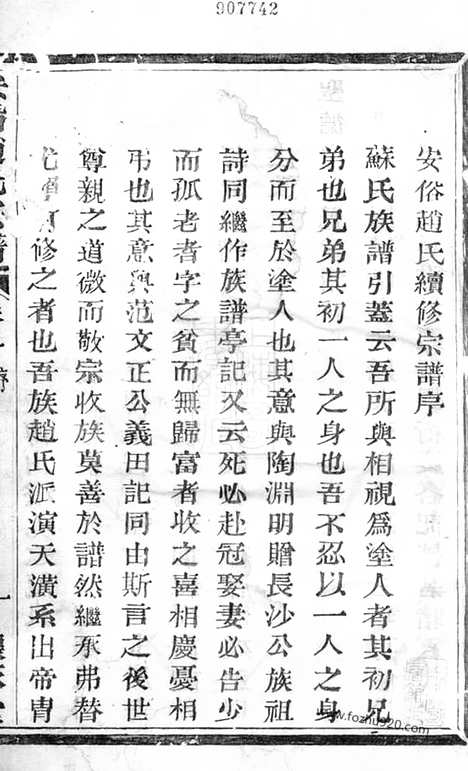 907742
安俗趙氏續修宗譜序
蘇氏族譜引蓋云吾所與相視爲塗人者其初兄
弟也兄弟其初一人之身也吾不忍以一人之身
分而至於塗人也其意與陶淵明贈長沙公族祖
詩同繼作族譜亭記又云死必赴冠娶妻必告少
而孤老者字之貧而無歸富者收之喜相慶憂相
弔也其意與范文正公義田記同由斯言之後世
尊親之道微而敬宗收族莫善於譜然繼承弗替
修之者也吾族趙氏派演天潢系出帝冑
一
www.fozhu920.com